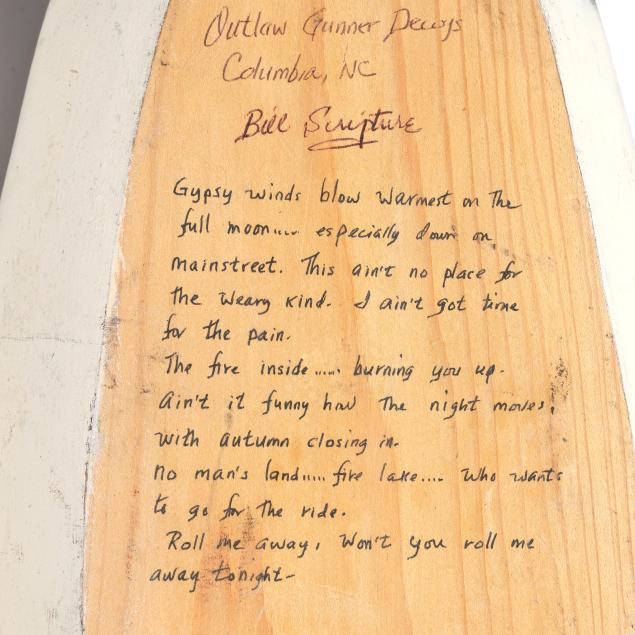 Outlaw Gunner Decoys
Columbia, NC
Bill Scripture
Gypsy winds blow warmest on The
full moon..... especially down on
mainstreet. This ain't no place for
the weary kind. I ain't got time
for the pain.
The fire inside..... burning you up.
Ain't it funny how The night moves,
with autumn closing in.
no man's land..... fire lake.... Who wants
to go for The ride.
Roll me away, Won't you roll me
away tonight-